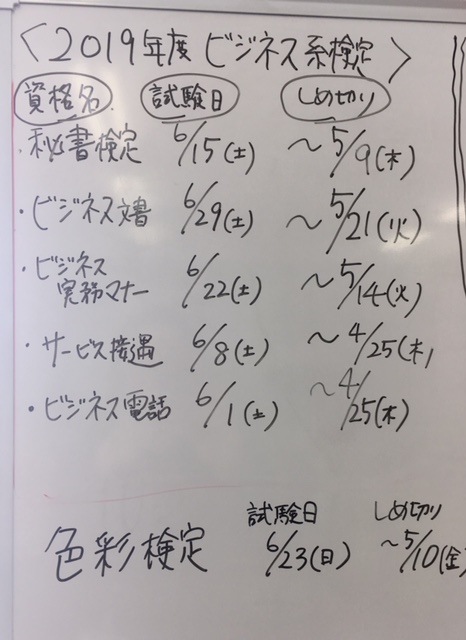 〈2019年度 ビジネス系検定〉
資格名 試験日 しめ切り
・秘書検定 6/15(土) 〜5/9(木)
・ビジネス文書 6/29(土) 〜5/21(火)
・ビジネス
実務マナー 6/22(土) 〜5/14(火)
・サービス接遇 6/8(土) 〜4/25(木)
・ビジネス電話 6/1(土) 〜4/25(木)
試験日 しめ切り
色彩検定 6/23(日) 〜5/10(金)